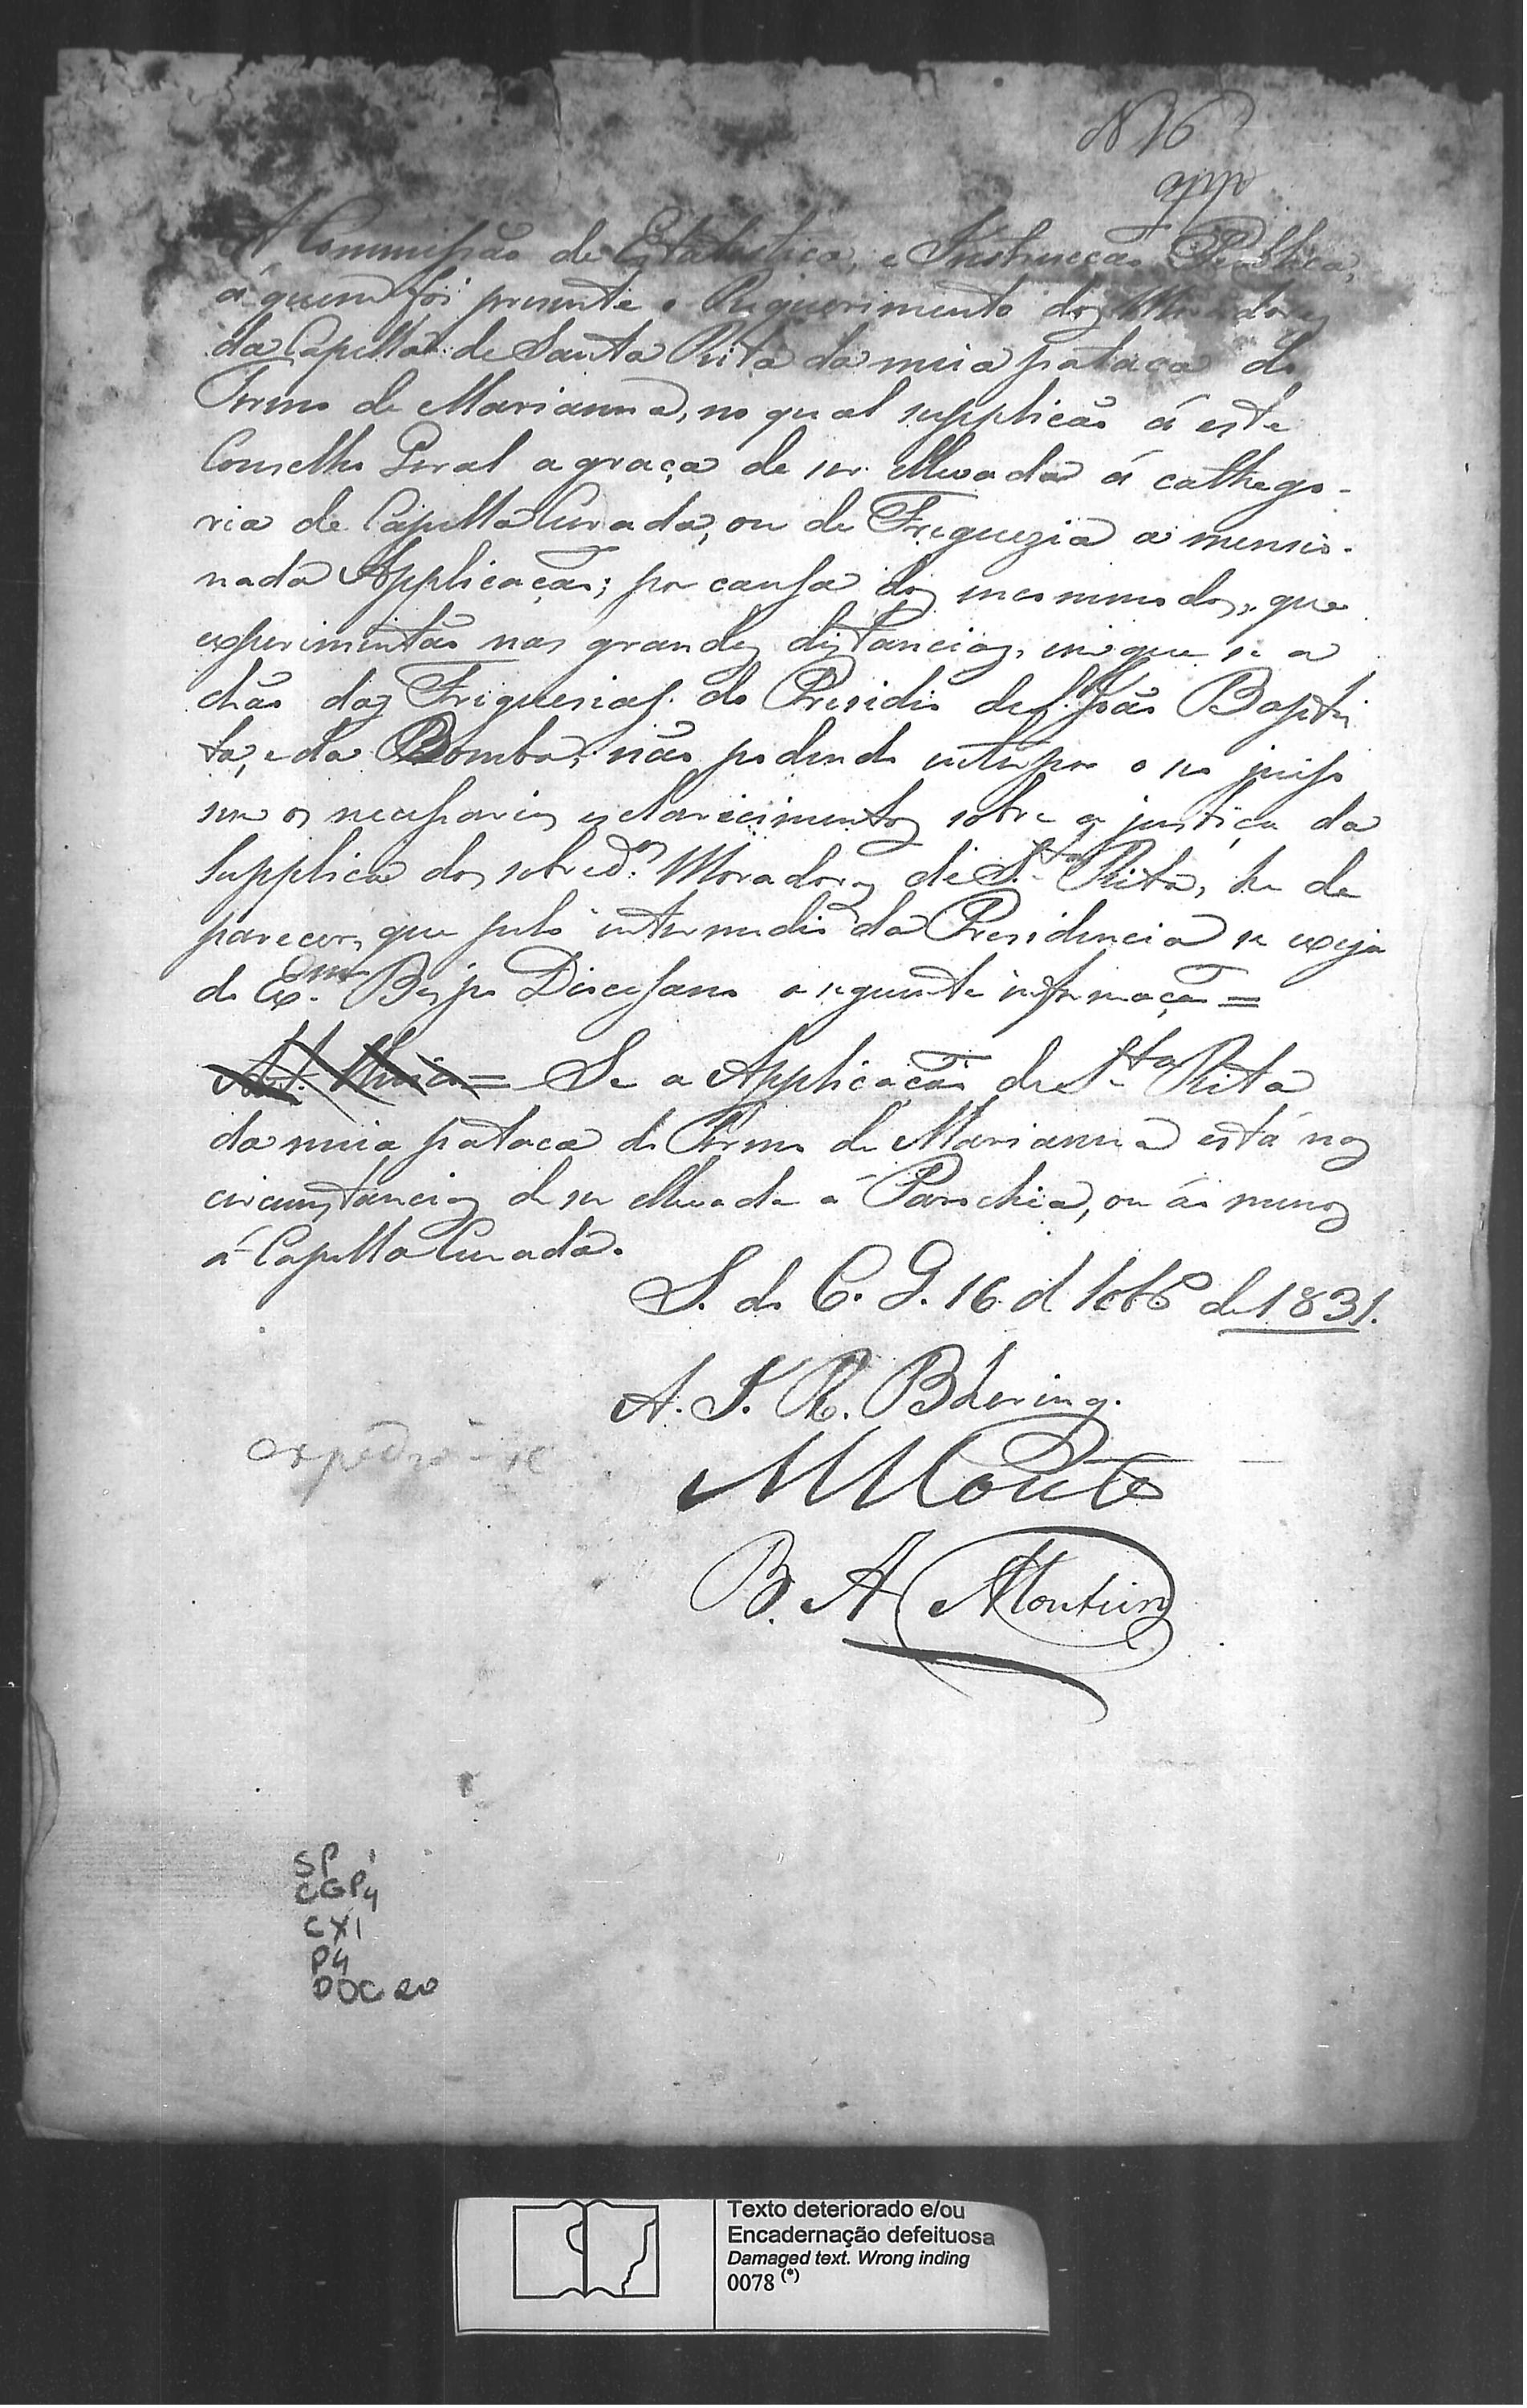 N 16
app
A Commissão de Estatistica, e Instrucção Publica,
á quem foi presente o Requerimento dos Moradores
da Capella de Santa Rita da meia pataca do
Termo de Marianna, no qual supplicão á este
Conselho Geral a graça de ser elevada á cathego-
ria de Capella Curada, ou de Freguezia a mensio-
nada Applicação; por causa dos incommodos, que
experimentão nas grandes distancias, em que se a
chão das Freguesias do Presidio de S. João Baptis
ta, e da Pomba; não podendo interpor o seo juiso
sem os necessarios esclarecimentos sobre a justiça da
supplica dos sobred.os Moradores de S.ta Rita, he de
parecer, que pelo intermedio da Presidencia se exija
do Ex.mo Bispo Diocesano a seguinte informação =
Art. Unico = Se a Applicação de S.ta Rita
da meia pataca do Termo de Marianna está nas
circunstancias de ser elevada á Parochia, ou áo menos
á Capella Curada.
S. do C. G. 16 de 1cbr.o de 1831.
A. J. R. Bhering.
M M Couto
expedio-se
B. A Monteiro
SP 1
CGP4
CX1
P4
DOC 20
Texto deteriorado e/ou
Encadernação defeituosa
Damaged text. Wrong inding
0078 (*)